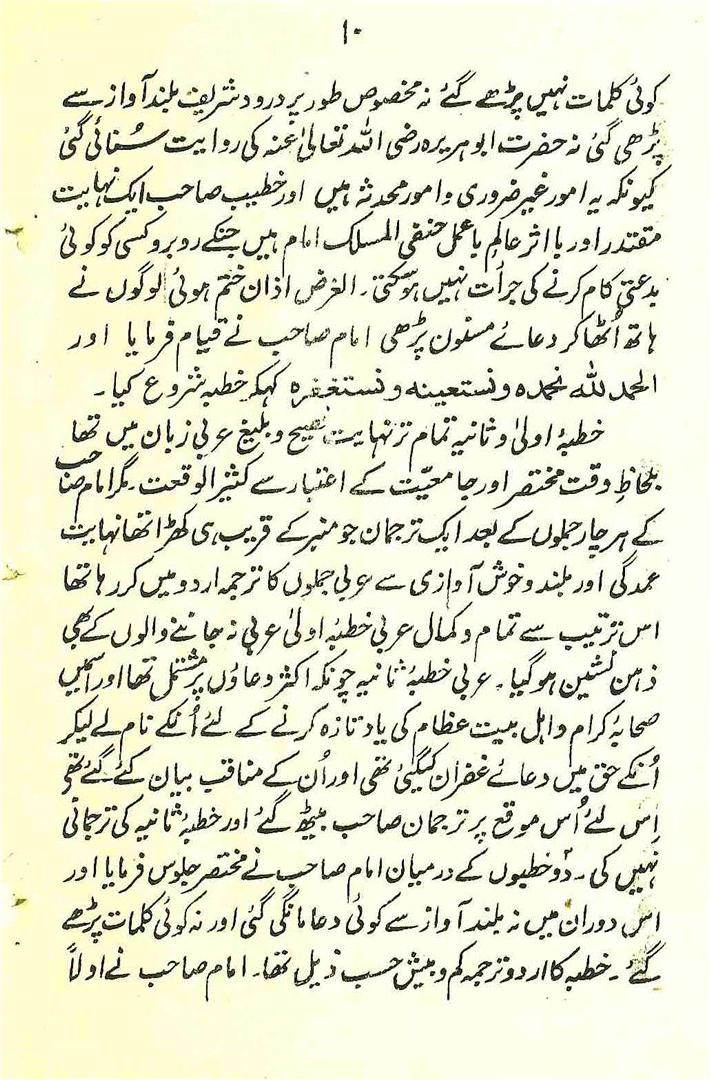 ۱۰
کوئی کلمات نہیں پڑھے گئے نہ مخصوص طور پر درود شریف بلند آواز سے
پڑھی گئی نہ حضرت ابوہریرہ رضی اللہ تعالیٰ عنہ کی روایت سُنائی گئی
کیونکہ یہ امور غیر ضروری و امور محدثہ ہیں اور خطیب صاحب ایک نہایت
مقتدر اور با اثر عالمِ باعمل حنفی المسلک امام ہیں جنکے روبرو کسی کو کوئی
بدعتی کام کرنے کی جرأت نہیں ہوسکتی۔ الغرض اذان ختم ہوئی لوگوں نے
ہاتھ اُٹھا کر دعائے مسنون پڑھی امام صاحب نے قیام فرمایا اور
الحمد للہ نحمدہ و نستعینہ و نستغفرہ کہکر خطبہ شروع کیا۔
خطبۂ اولیٰ و ثانیہ تمام تر نہایت فصیح و بلیغ عربی زبان میں تھا
بلحاظِ وقت مختصر اور جامعیّت کے اعتبار سے کثیر الوقعت۔ مگر امام صاحب
کے ہر چار جملوں کے بعد ایک ترجمان جو منبر کے قریب ہی کھڑا تھا نہایت
عمدگی اور بلند و خوش آوازی سے عربی جملوں کا ترجمہ اردو میں کر رہا تھا
اس ترتیب سے تمام و کمال عربی خطبۂ اولیٰ عربی نہ جاننے والوں کے بھی
ذہن نشین ہو گیا۔ عربی خطبۂ ثانیہ چونکہ اکثر دعاؤں پر مشتمل تھا اور اسمیں
صحابۂ کرام و اہل بیت عظام کی یاد تازہ کرنے کے لئے اُنکے نام لے لیکر
اُنکے حق میں دعائے غفران کیگئی تھی اور اُن کے مناقب بیان کئے گئے تھے
اِس لئے اُس موقع پر ترجمان صاحب بیٹھ گئے اور خطبۂ ثانیہ کی ترجمانی
نہیں کی۔ دو خطبوں کے درمیان امام صاحب نے مختصر جلوس فرمایا اور
اس دوران میں نہ بلند آواز سے کوئی دعا مانگی گئی اور نہ کوئی کلمات پڑھے
گئے۔ خطبہ کا اردو ترجمہ کم و بیش حسب ذیل تھا۔ امام صاحب نے اولاً